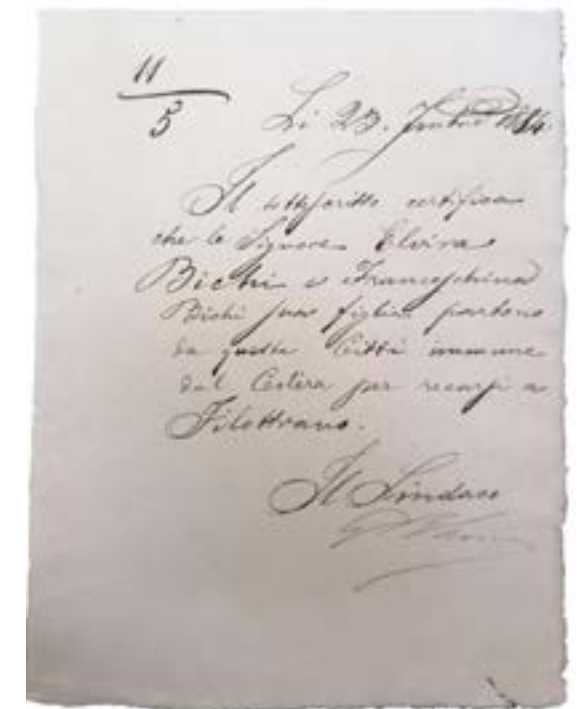 11
5
Li 23. 1884.
Il sottoscritto certifica
che le Signore Elvira
Bichi e Franceschina
Bichi sua figlia partono
da questa Città immune
dal Coléra per recarsi a
Filottrano.
Il Sindaco